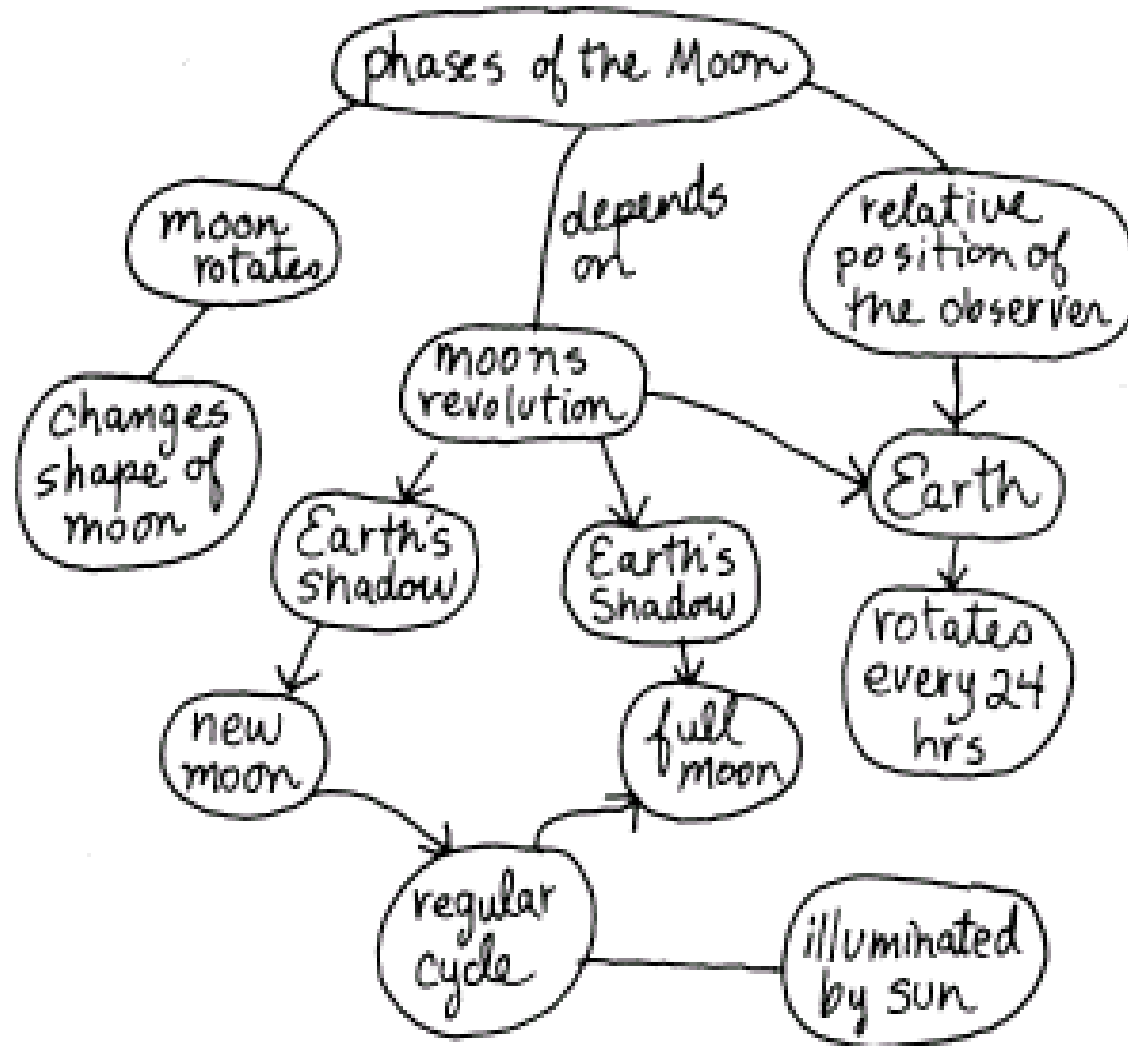 phases of the Moon
moon
rotates
depends
on
relative
position of
the observer
changes
shape of
moon
moons
revolution
Earth
Earth's
shadow
Earth's
Shadow
rotates
every 24
hrs
new
moon
full
moon
regular
cycle
illuminated
by sun